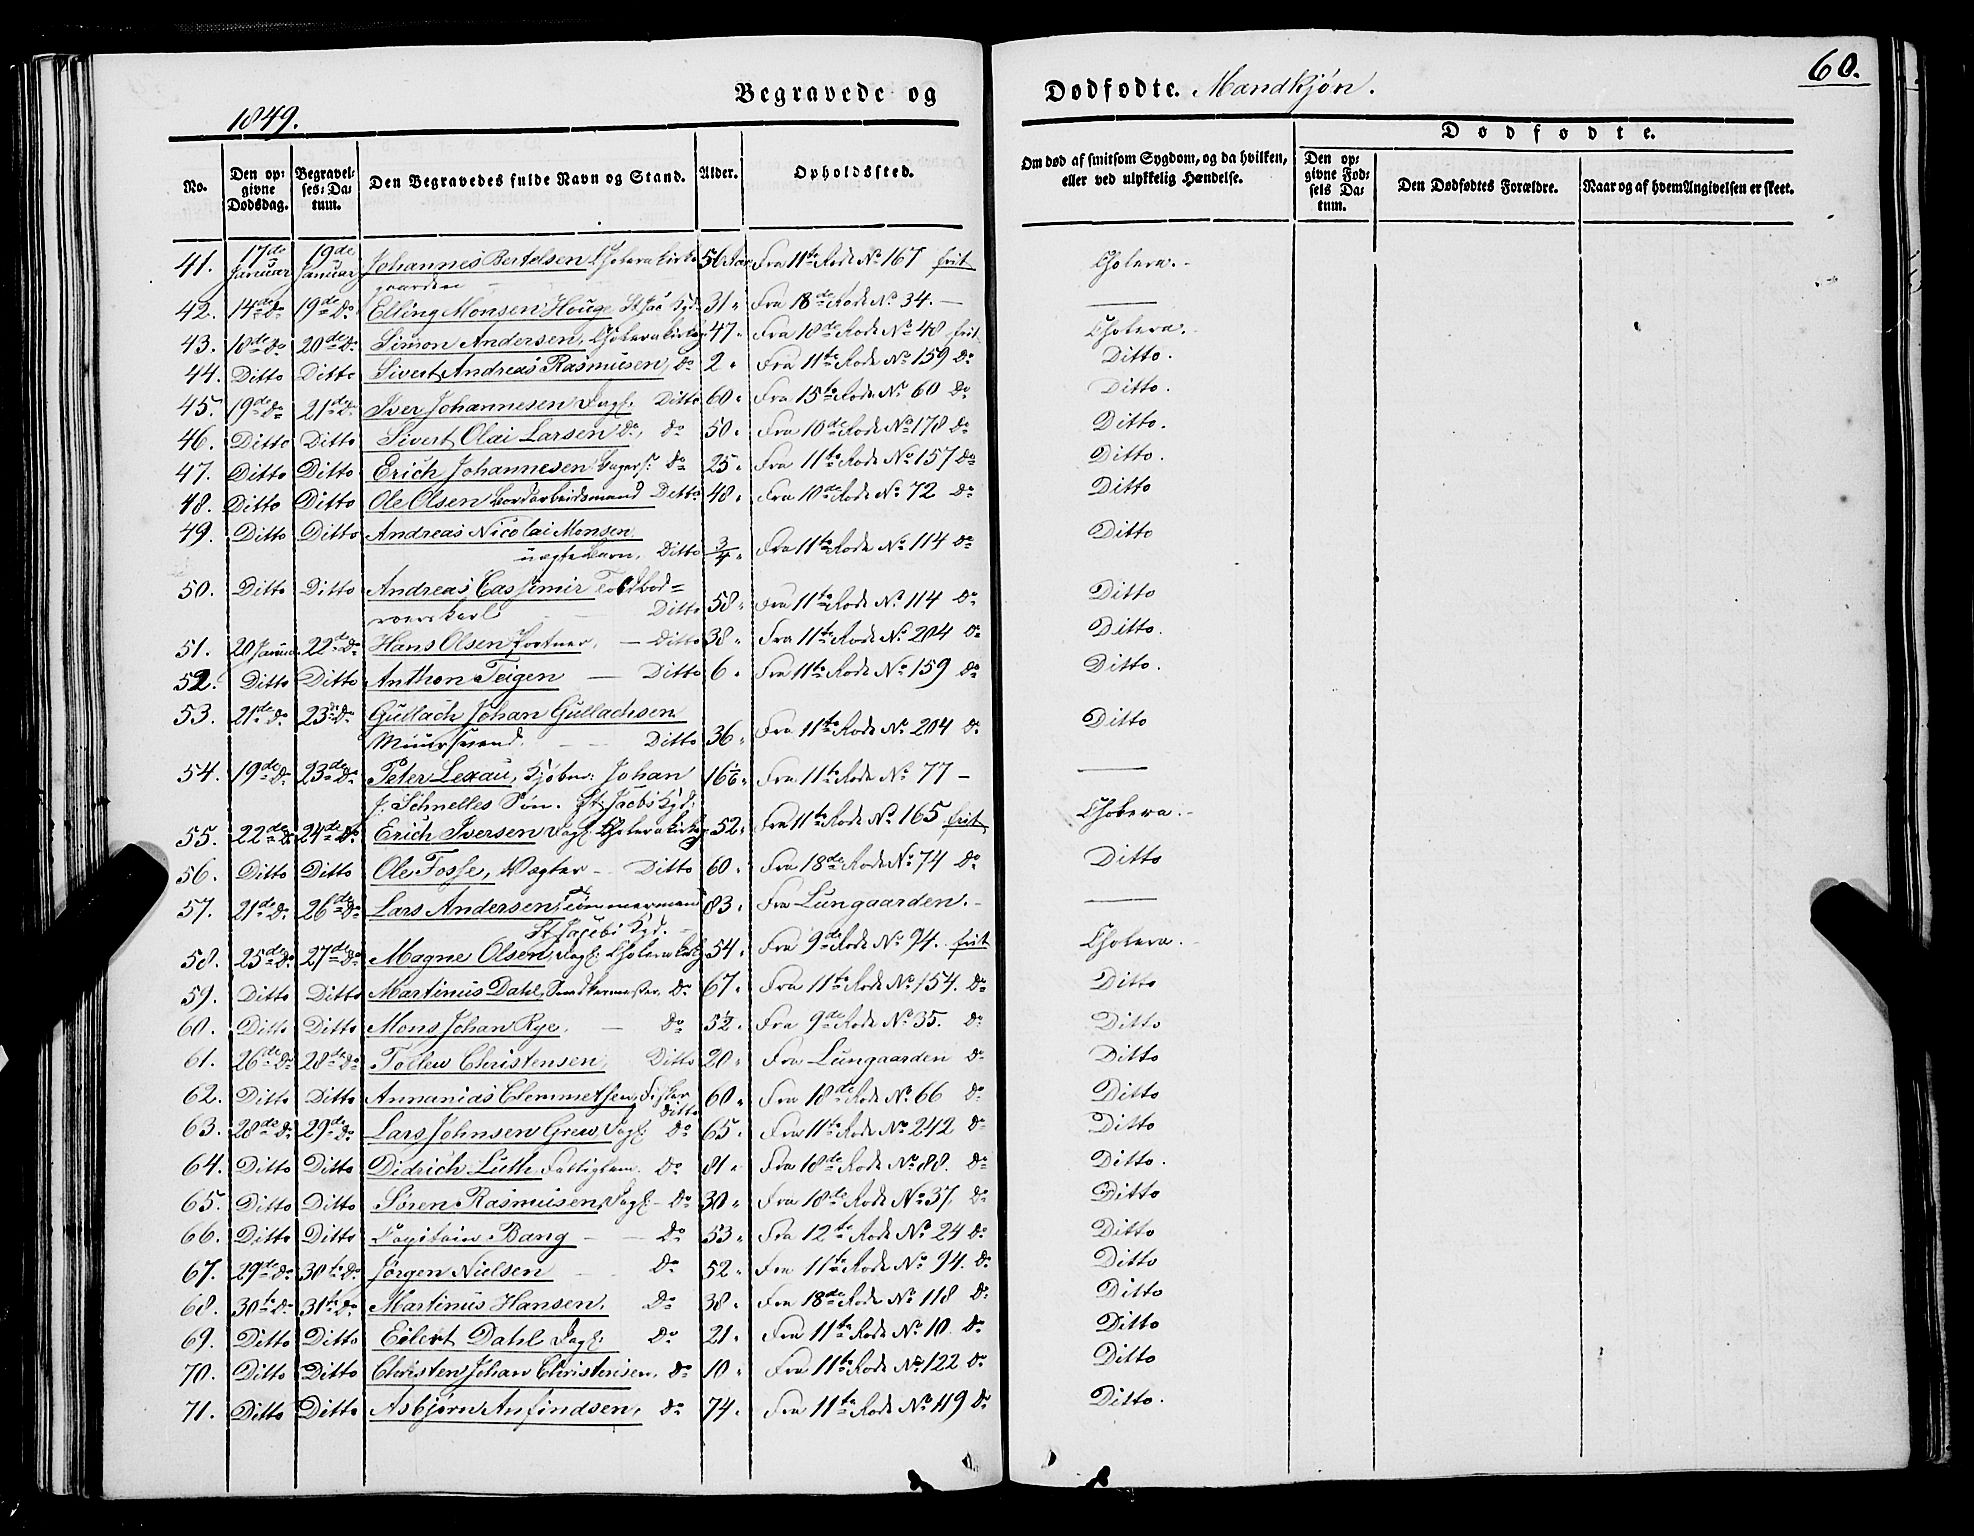 60.
1849. Begravede og Dødfødte. Mandkjøn.
Dødfødte.
No. | Den opgivne Dødsdag. | Begravelses-Datum. | Den Begravedes fulde Navn og Stand. | Alder. | Opholdssted. | Om død af smitsom Sygdom, og da hvilken, eller ved ulykkelig Hændelse. | Den opgivne Fødsels Datum. | Den Dødfødtes Forældre. | Naar og af hvem Angivelsen er skeet.
41. 17de Januar 19de Januar Johannes Bertelsen Cholerakirkegaarden 56 Aar Fra 11te Rode No 167 frit Cholera.
42. 14de Do 19de Do Elling Monsen Houge St Jac Kgd. 31 " Fra 18de Rode No 34. —
43. 18de Do 20de Do Simon Andersen, Cholerakirkeg 47 " Fra 18de Rode No 48 frit Cholera.
44. Ditto Ditto Sivert Andreas Rasmusen, Do 2 " Fra 11te Rode No 159 Do Ditto.
45. 19de Do 21de Do Iver Johannesen Dagl. Ditto 60 " Fra 15te Rode No 60 Do Ditto.
46. Ditto Ditto Sivert Olai Larsen Do, Do 50 " Fra 10de Rode No 178 Do Ditto.
47. Ditto Ditto Erich Johannesen Bagers. Do 25 " Fra 11te Rode No 157 Do Ditto.
48. Ditto Ditto Ole Olsen Bordarbeidsmand Ditto 48 " Fra 10de Rode No 72 Do Ditto
49. Ditto Ditto Andreas Nicolai Monsen
uægte Barn, Ditto 3/4 " Fra 11te Rode No 114 Do Ditto
50. Ditto Ditto Andreas Cassimir Toldbod=
roerskarl Ditto 58 " Fra 11te Rode No 114 Do Ditto
51. 20 Januar 22de Do Hans Olsen Portner, — Ditto 38 " Fra 11te Rode No 204 Do Ditto.
52. Ditto Ditto Anthon Teigen — Ditto 6 " Fra 11te Rode No 159 Do Ditto.
53. 21de Do 23de Do Gullach Johan Gullachsen
Muursvend. — Ditto 36 " Fra 11te Rode No 204 Do Ditto
54. 19de Do 23de Do Peter Lexau, Kjøbm: Johan 16 1/6 " Fra 11te Rode No 77 —
J. Schnelles Søn. St Jacobs Kgd.
55. 22de Do 24de Do Erich Iversen Dagl. Cholerakirkeg 52 " Fra 11te Rode No 165 frit Cholera.
56. Ditto Ditto Ole Fosse, Vægter — Ditto 60 " Fra 18de Rode No 74 Do Ditto
57. 21de Do 26de Do Lars Andersen, Tømmermand 83 " Fra Lungaarden. —
St Jacobi Kgd.
58. 25de Do 27de Do Magne Olsen, Dagl. Cholerakirkg 54 " Fra 9de Rode No 94. frit Cholera.
59. Ditto Ditto Martinus Dahl, Do 67 " Fra 11te Rode No 154. Do Ditto
60. Ditto Ditto Mons Johan Rye. — Do 5 1/2 " Fra 9de Rode No 35. Do Ditto
61. 26de Do 28de Do Tollew Christensen, Ditto 20 " Fra Lungaarden Do Ditto
62. Ditto Ditto Annanias Clemmetsen, Fisker Ditto 60 " Fra 18de Rode No 66 Do Ditto
63. 28de Do 29de Do Lars Johnsen Grew, Dagl. Do 65 " Fra 11te Rode No 242 Do Ditto
64. Ditto Ditto Didrich Luth Fattiglem. Do 81 " Fra 18de Rode No 88. Do Ditto.
65. Ditto Ditto Søren Rasmusen, Dagl. Do 30 " Fra 18de Rode No 37. Do Ditto
66. Ditto Ditto Capitain Bang — Do 53 " Fra 12te Rode No 24 Do Ditto
67. 29de Do 30te Do Jørgen Nielsen Do 52 " Fra 11te Rode No 94. Do Ditto
68. 30te Do 31te Do Martinus Hansen, Do 38 " Fra 18de Rode No 118 Do Ditto
69. Ditto Ditto Eilert Dahl Dagl. Do 21 " Fra 11te Rode No 10 Do Ditto
70. Ditto Ditto Christen Johan Christensen, Do 10 " Fra 11te Rode No 122 Do Ditto
71. Ditto Ditto Asbjørn Anfindsen, Do 74 " Fra 11te Rode No 119 Do Ditto.